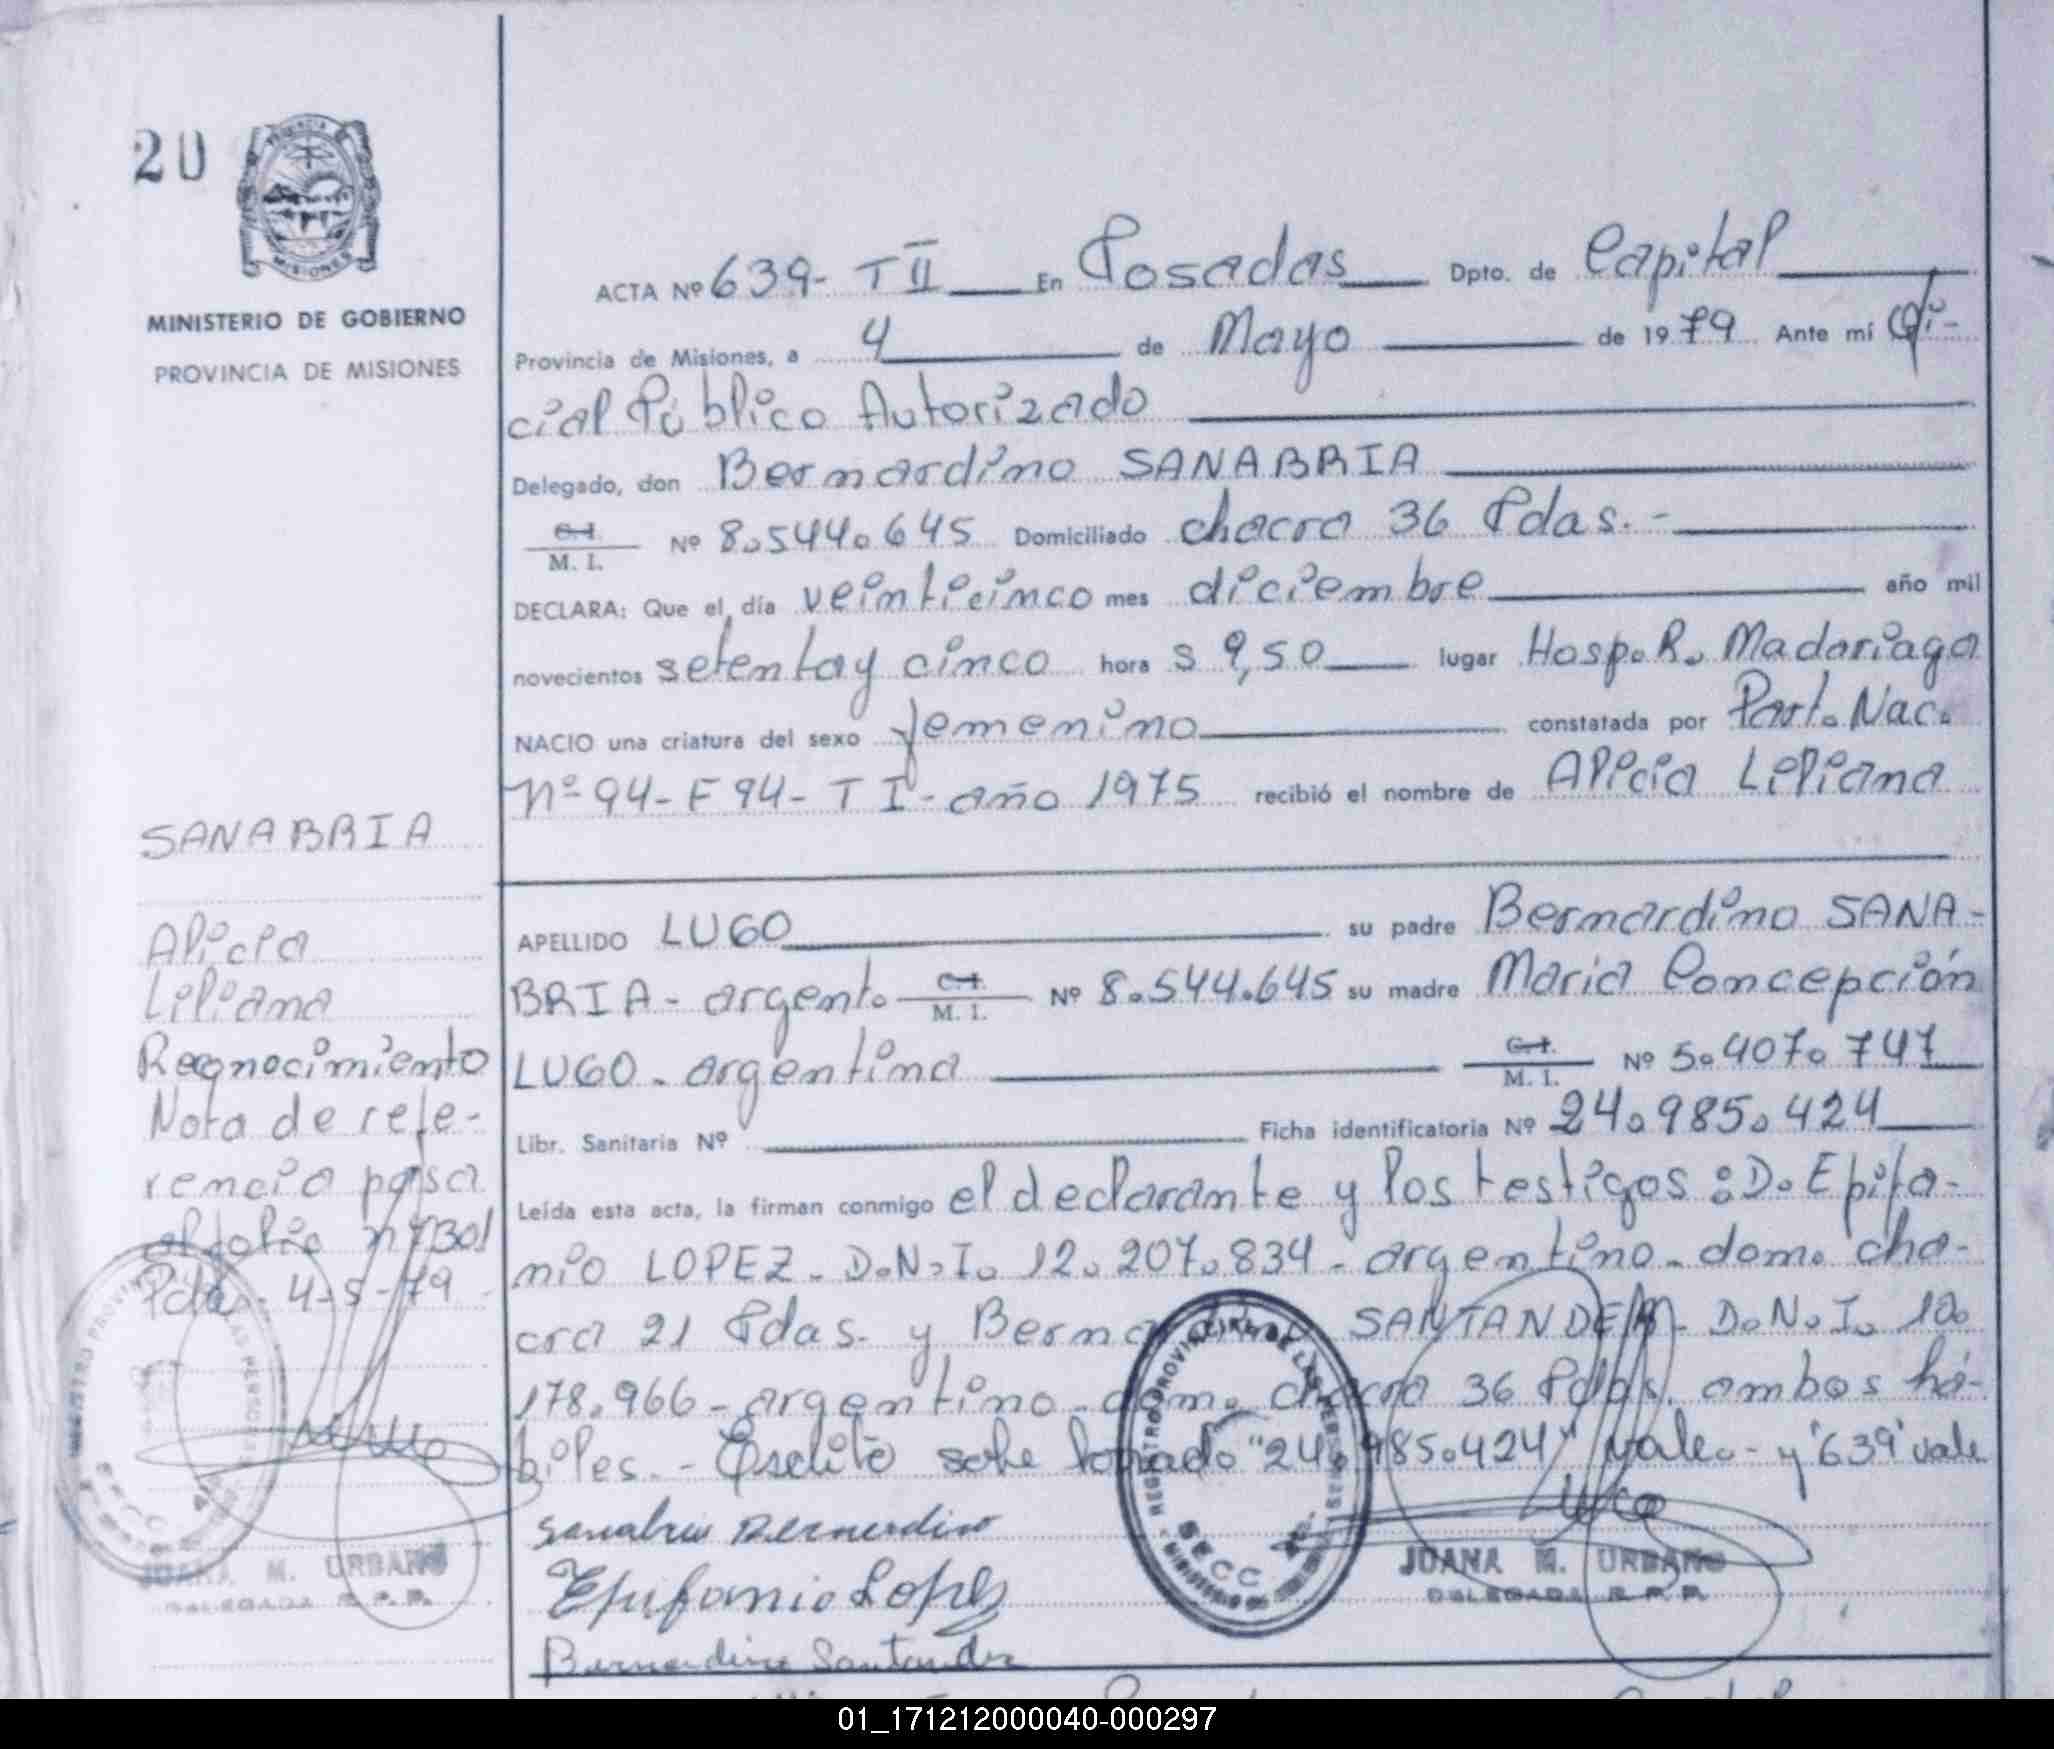 20
PROVINCIA
MISIONES
MINISTERIO DE GOBIERNO
PROVINCIA DE MISIONES
ACTA Nº 639- T II En Posadas Dpto. de Capital
Provincia de Misiones, a 4 de Mayo de 1979 Ante mí Ofi-
cial Público Autorizado
Delegado, don Bernardino SANABRIA
C.I.
M. I. Nº 8.544.645 Domiciliado chacra 36 Pdas.-
DECLARA: Que el día veinticinco mes diciembre año mil
novecientos setenta y cinco hora s 9,50 lugar Hosp. R. Madariaga
NACIO una criatura del sexo femenino constatada por Part. Nac.
Nº 94- F 94- T I- año 1975 recibió el nombre de Alicia Liliana
APELLIDO LUGO su padre Bernardino SANA-
BRIA- argento. C.I. M. I. Nº 8.544.645 su madre Maria Concepción
LUGO. argentina C.I. M. I. Nº 5.407.747
Libr. Sanitaria Nº Ficha identificatoria Nº 24.985.424
Leída esta acta, la firman conmigo el declarante y los testigos: D. Epifa-
nio LOPEZ. D.N.I. 12.207.834- argentino. dom. cha-
cra 21 Pdas. y SANTANDER- D.N.I. 10.
178.966- argentino. dom. chacra 36 Pdas. ambos há-
biles.- Escrito sobre borrado "24.985.424" vale.- y "639" vale
Sanabria Bernardino
Epifanio Lopez
Bernardino Santander
SANABRIA
Alicia
Liliana
Recgnocimiento
Nota de refe-
rencia pasa
al folio nº 301
Pdas. 4-5-79
JUANA M. URBANO
DELEGADA R. P. P.
REGISTRO PROVINCIAL DE LAS PERSONAS
SECC
JUANA M. URBANO
DELEGADA R. P. P.
01_171212000040-000297